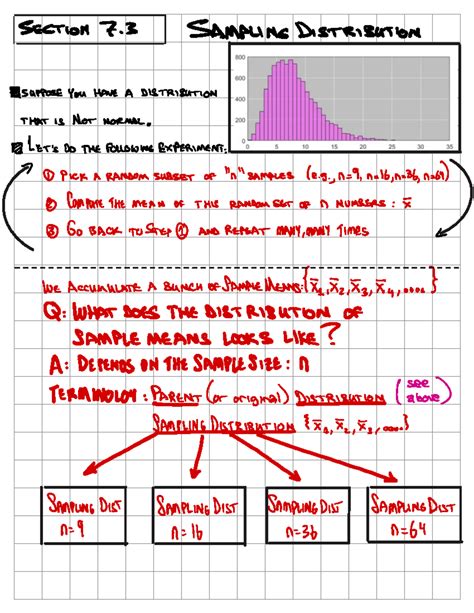 SECTION 7.3
SAMPLING DISTRIBUTION
800
600
400
200
0
0 5 10 15 20 25 30 35
SUPPOSE YOU HAVE A DISTRIBUTION
THAT IS NOT NORMAL.
LET'S DO THE FOLLOWING EXPERIMENT:
① PICK A RANDOM SUBSET OF "n" SAMPLES (e.g., n=9, n=16, n=36, n=64)
② COMPUTE THE MEAN OF THIS RANDOM SET OF n NUMBERS: x̄
③ GO BACK TO STEP ① AND REPEAT MANY, MANY TIMES
WE ACCUMULATE A BUNCH OF SAMPLE MEANS: {x̄₁, x̄₂, x̄₃, x̄₄, ....}
Q: WHAT DOES THE DISTRIBUTION OF
SAMPLE MEANS LOOKS LIKE?
A: DEPENDS ON THE SAMPLE SIZE: n
TERMINOLOGY: PARENT (or original) DISTRIBUTION (see above)
SAMPLING DISTRIBUTION {x̄₁, x̄₂, x̄₃, ....}
SAMPLING DIST
n=9
SAMPLING DIST
n=16
SAMPLING DIST
n=36
SAMPLING DIST
n=64